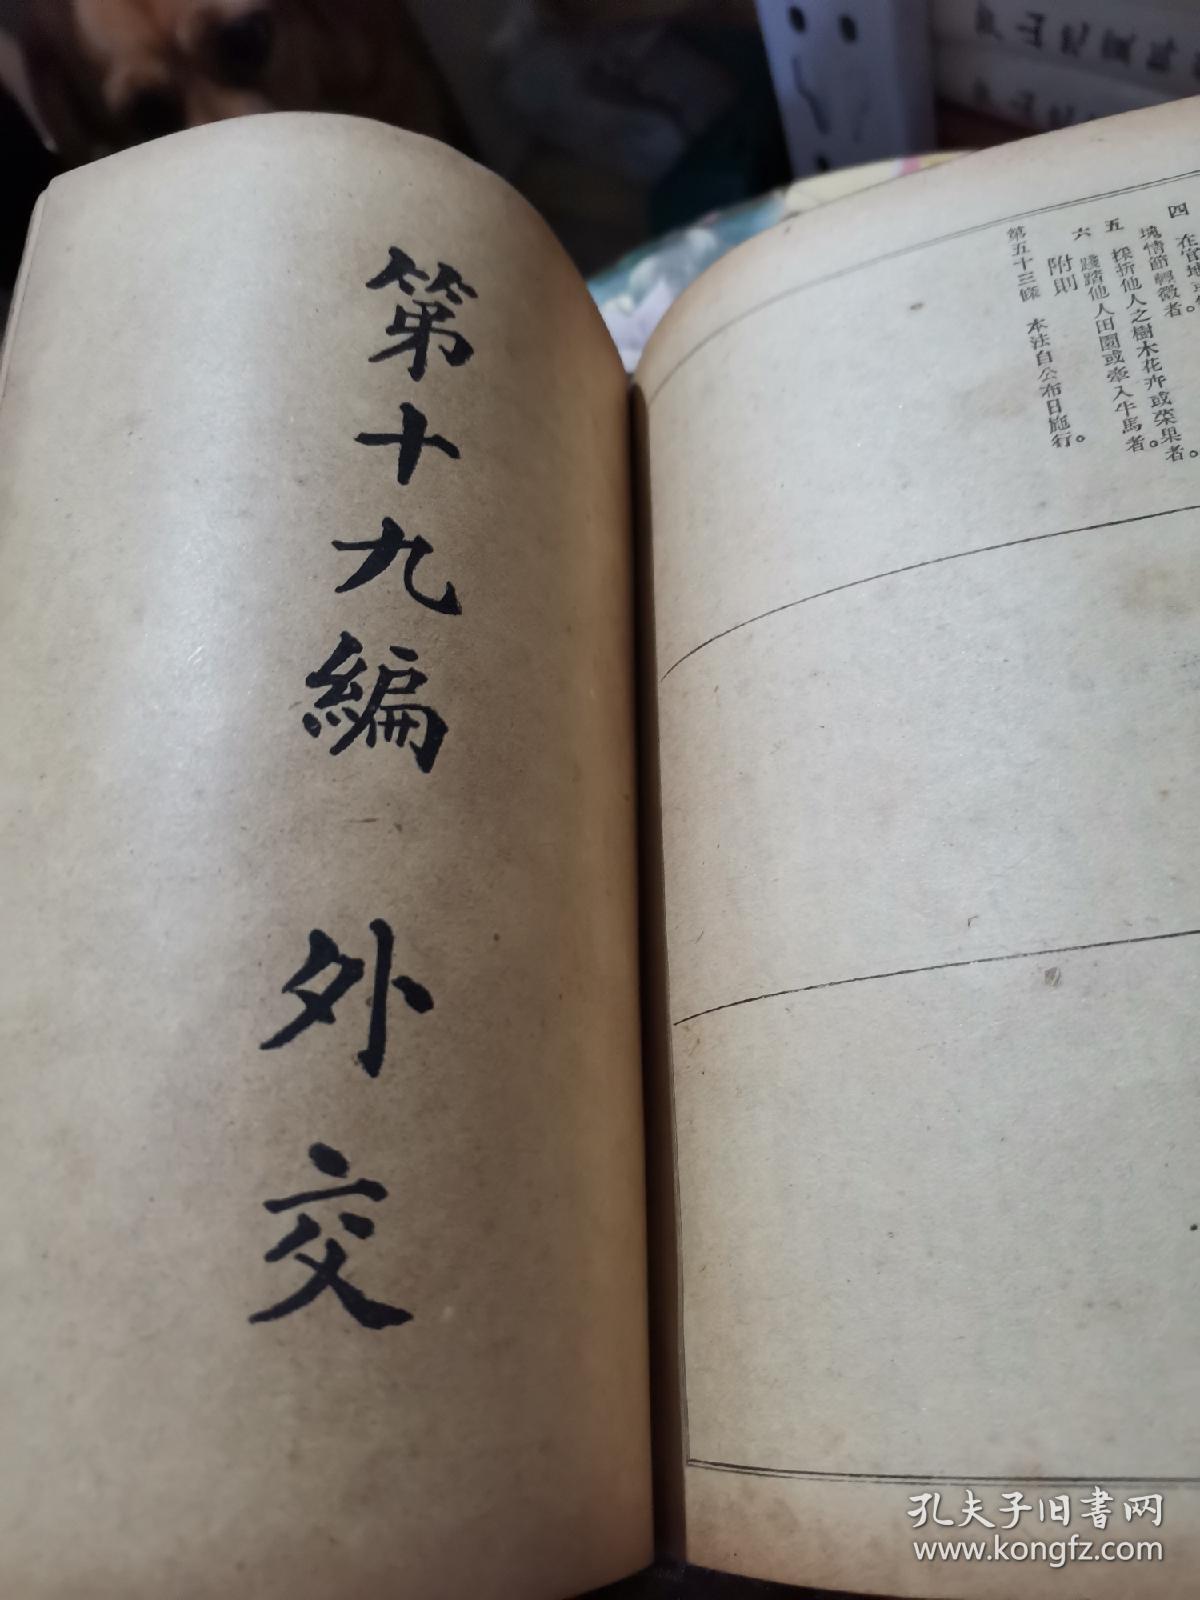 四　在官地
塊情節輕微者。
五　採折他人之樹木花卉或菜果者。
六　踐踏他人田園或牽入牛馬者。
附則
第五十三條　本法自公布日施行。
第十九編　外交
孔夫子旧书网
www.kongfz.com